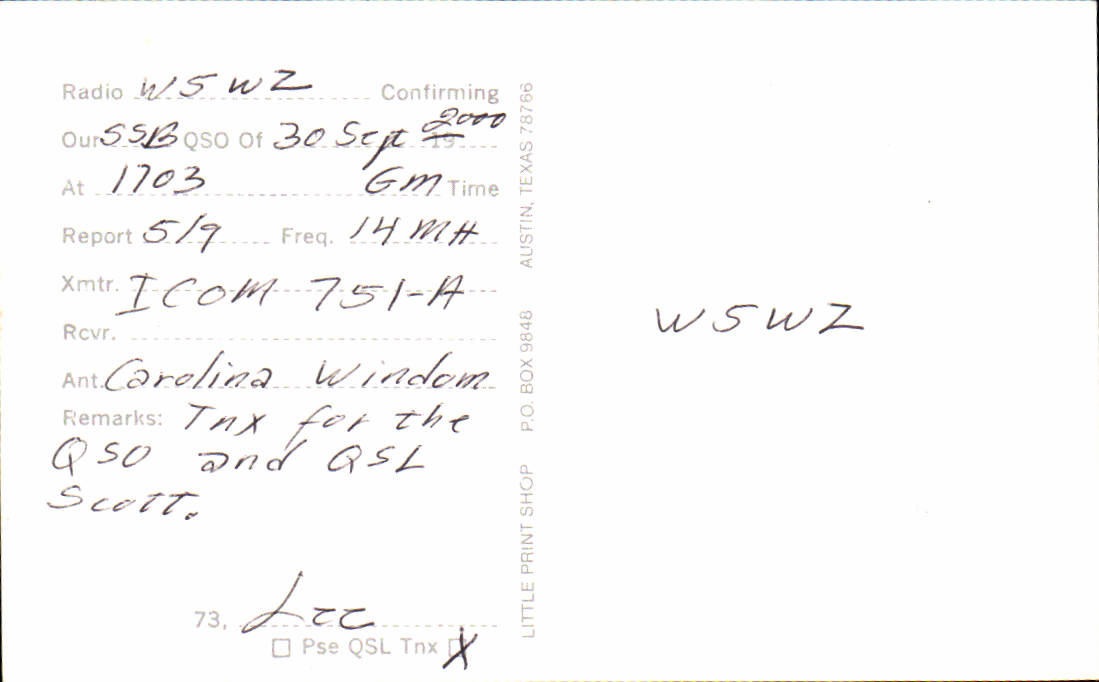 Radio W5WZ Confirming
Our SSB QSO Of 30 Sept 19 2000
At 1703 GM Time
Report 5/9 Freq. 14 MH
Xmtr. ICOM 751-A
Rcvr.
Ant. Carolina Windom
Remarks: Tnx for the
QSO and QSL
Scott.
73, Lee
☐ Pse QSL Tnx ☒
LITTLE PRINT SHOP P.O. BOX 9848 AUSTIN, TEXAS 78766
W5WZ